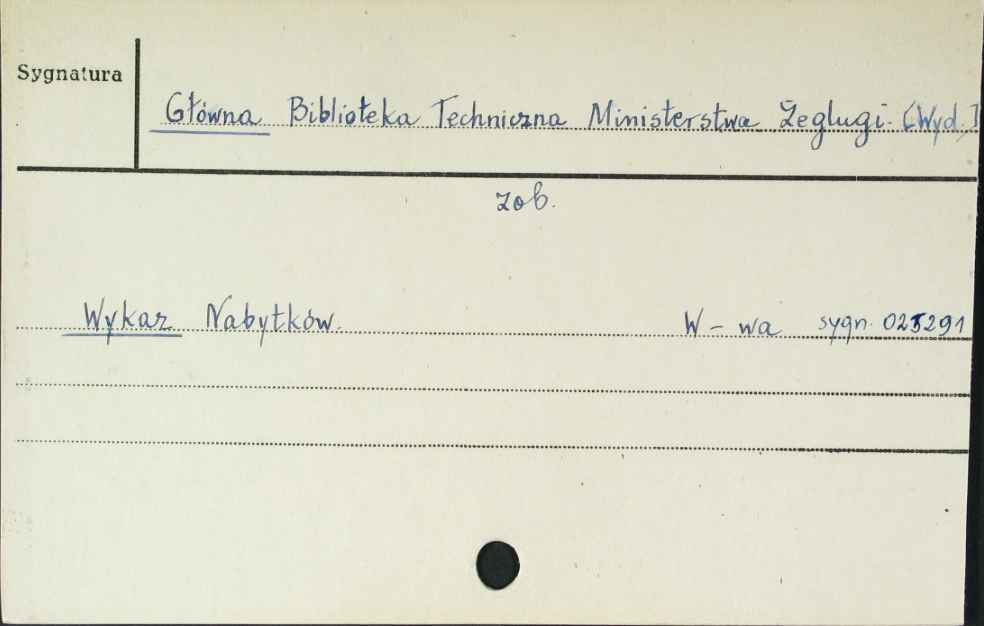 Sygnatura
Główna Biblioteka Techniczna Ministerstwa Żeglugi. [Wyd.]
zob.
Wykaz Nabytków. W-wa sygn. 025291